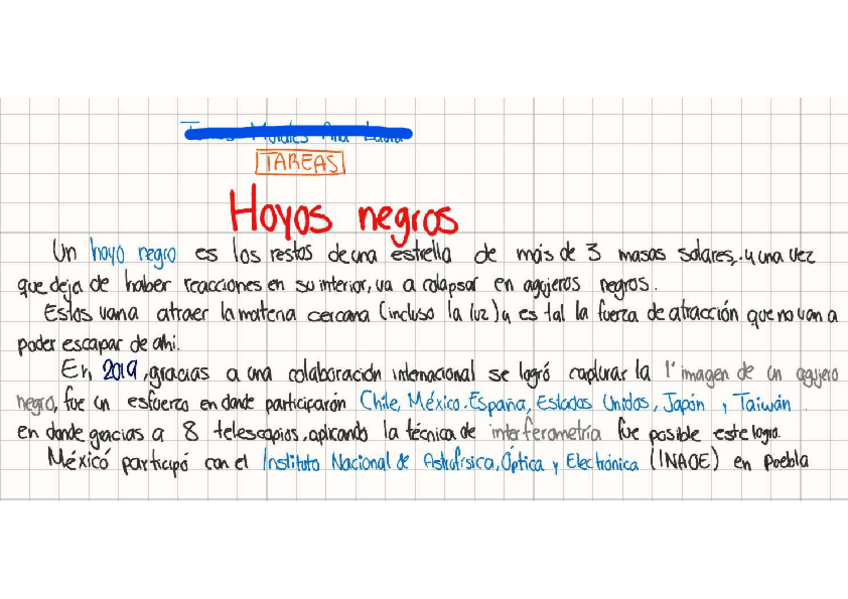 TAREAS
Hoyos negros
Un hoyo negro es los restos de una estrella de más de 3 masas solares, y una vez
que deja de haber reacciones en su interior, va a colapsar en agujeros negros.
Estos van a atraer la materia cercana (incluso la luz) y es tal la fuerza de atracción que no van a
poder escapar de ahi.
En 2019, gracias a una colaboración internacional se logró capturar la 1ª imagen de un agujero
negro, fue un esfuerzo en donde participarón Chile, México, España, Estados Unidos, Japón y Taiwán
en donde gracias a 8 telescopios, aplicando la técnica de interferometría fue posible este logro.
Méxicó participó con el Instituto Nacional de Astrofísica, Óptica y Electrónica (INAOE) en Puebla